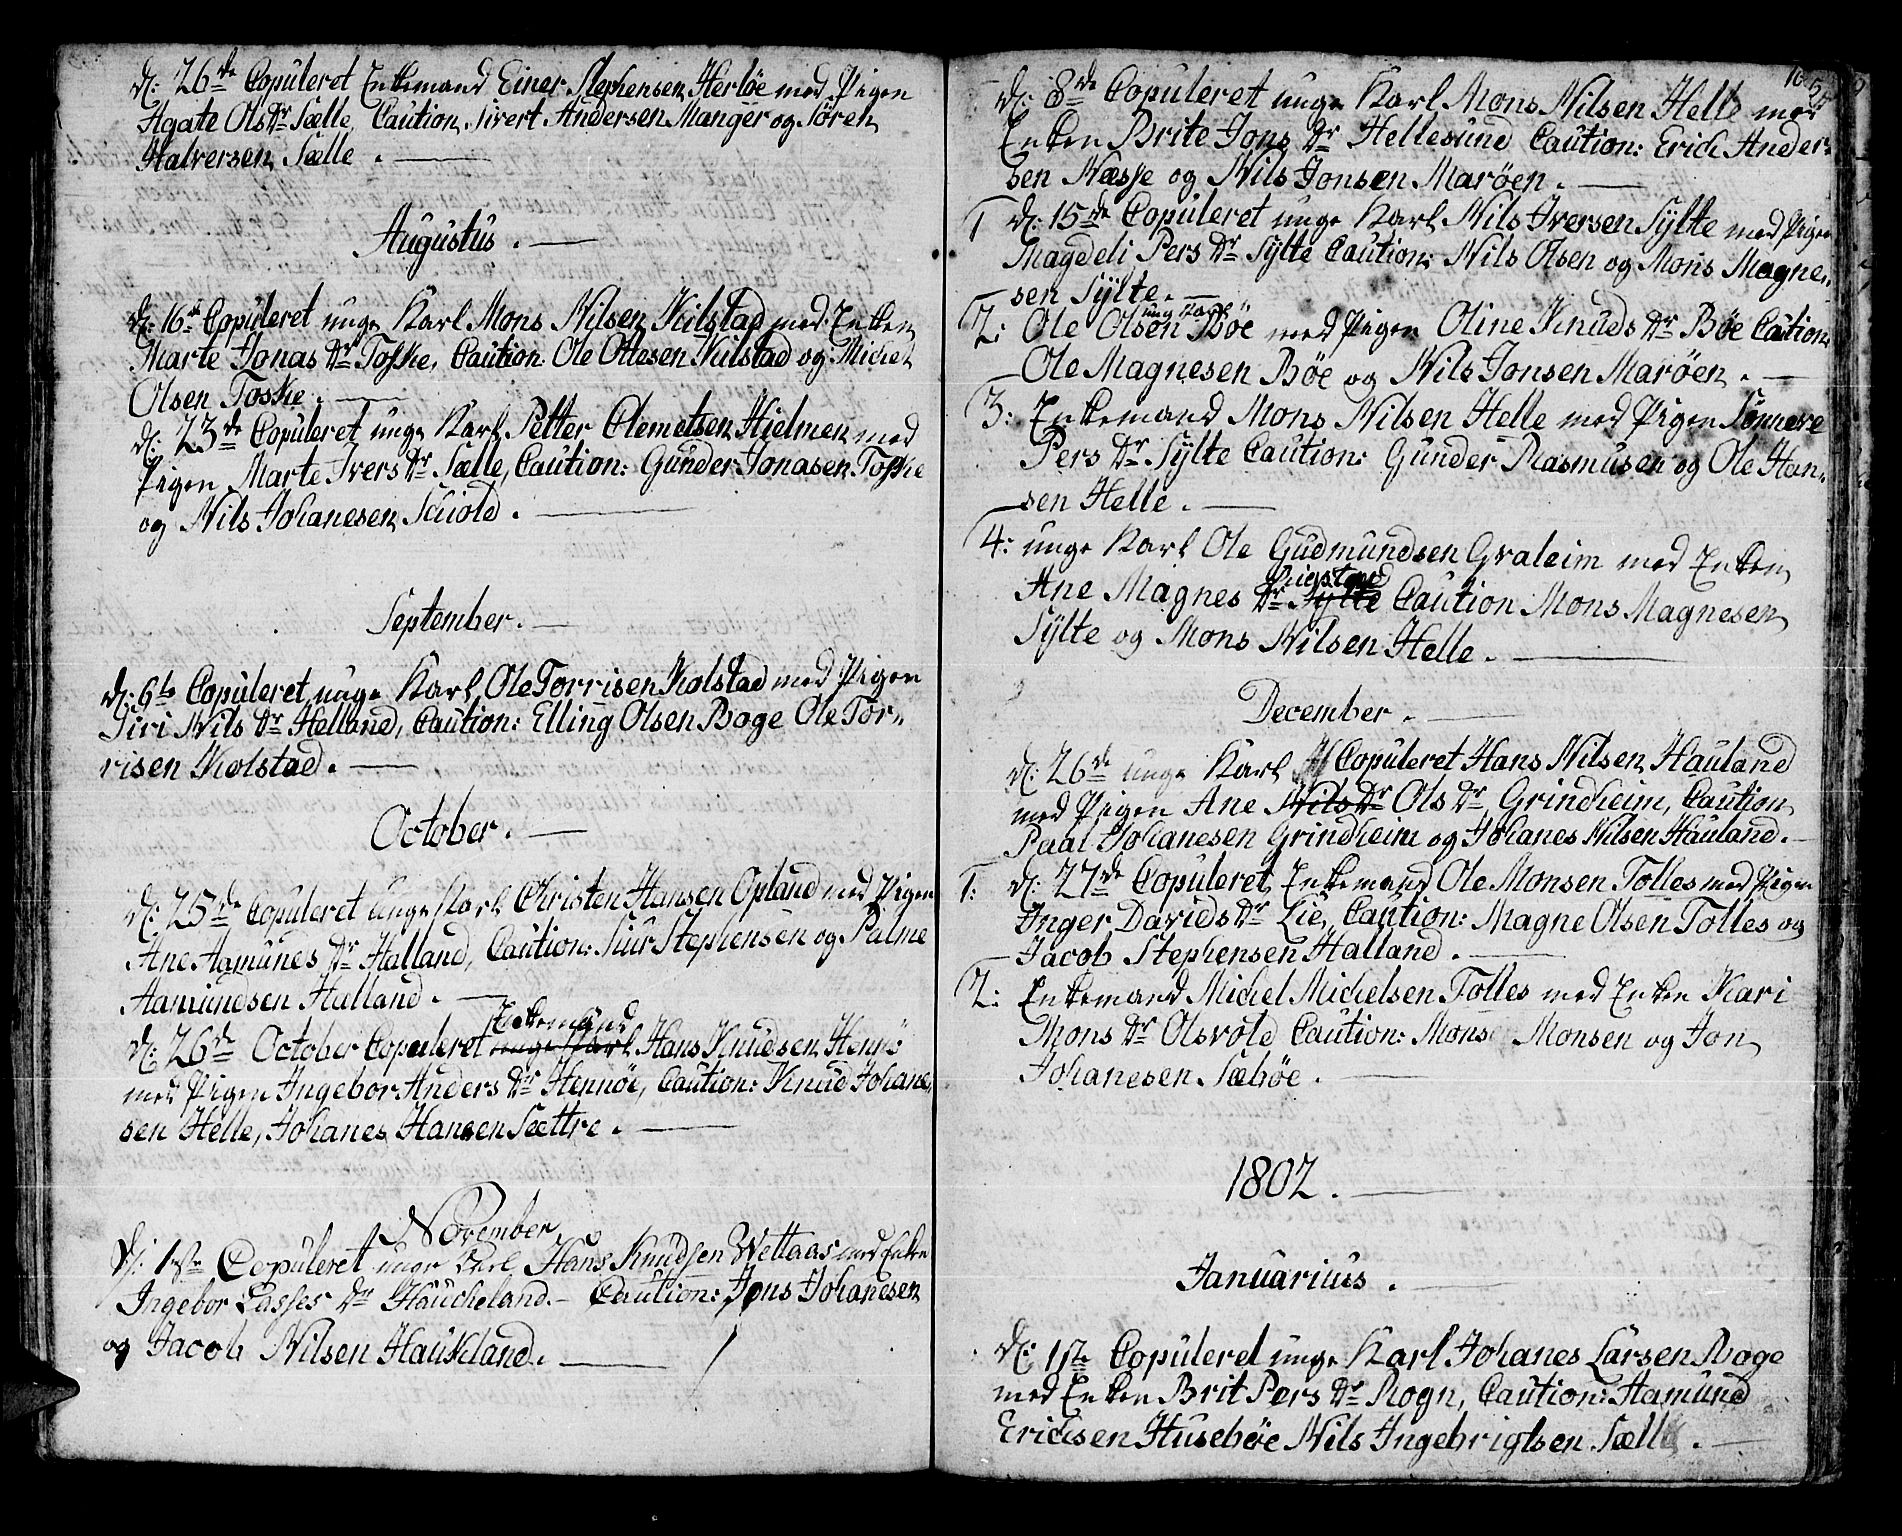 d: 26de Copuleret Enkemand Einer Stephensen Herløe med Pigen
Agate Ols Dr Sælle, Caution Sivert Andersen Manger og Søren
Halversen Sælle.
Augustus.
d: 16de Copuleret unge Karl Mons Nilsen Kilstad med Enken
Marte Jonas Dr Toske, Caution Ole Ottesen Kilstad og Michel
Olsen Toske.
d: 23de Copuleret unge Karl Petter Clemetsen Hielmen med
Pigen Marte Ivers Dr Sælle, Caution: Gunder Jonasen Toske
og Nils Johanesen Sciold.
September.
d: 6te Copuleret unge Karl Ole Torrisen Kolstad med Pigen
Siri Nils Dr Helland, Caution: Elling Olsen Boge Ole Tor„
risen Kolstad.
October.
d: 25de Copuleret unge Karl Christen Hansen Opland med Pigen
Ane Aamunes Dr Halland, Caution: Siur Stephensen og Palme
Aamundsen Halland.
Enkemand
d: 26de October Copuleret unge Karl Hans Knudsen Hennø
med Pigen Ingebor Anders Dr Hennøe, Caution: Knud Johane„
sen Helle, Johanes Hansen Sættre.
November
d: 1ste Copuleret unge Karl Hans Knudsen Wettaas med Enken
Ingebor Lasses Dr Haucheland. Caution: Jens Johanesen
og Jacob Nilsen Haukland.
d: 8de Copuleret unge Karl Mons Nilsen Helle med
Enken Brite Jons Dr Hellesund Caution: Erich Ander„
sen Næsse og Nils Jonsen Marøen.
1 d: 15de Copuleret unge Karl Nils Iversen Sylte med Pigen
Magdeli Pers Dr Sylte Caution: Nils Olsen og Mons Magne„
sen Sylte.
ung Karl
2: Ole Olsen Bøe med Pigen Oline Knuds Dr Bøe Caution
Ole Magnesen Bøe og Nils Jonsen Marøen.
3: Enkemand Mons Nilsen Helle med Pigen Sønneve
Pers Dr Sylte Caution: Gunder Rasmusen og Ole Han„
sen Helle.
4: unge Karl Ole Gudmundsen Gvaleim med Enken
Ane Magnes Dr Sylte Caution Mons Magnesen
Sylte og Mons Nilsen Helle.
December.
d: 26de unge Karl Copuleret Hans Nilsen Hauland
med Pigen Ane Nils Dr Ols Dr Grindheim, Caution
Paal Johanesen Grindheim og Johanes Nilsen Hauland.
1: d: 27de Copuleret Enkemand Ole Monsen Tolles med Pigen
Inger Davids Dr Lie, Caution: Magne Olsen Tolles og
Jacob Stephensen Halland.
2: Enkemand Michel Michelsen Tolles med Enken Kari
Mons Dr Olsvold Caution: Mons Monsen og Jon
Johanesen Sæbøe.
1802.
Januarius.
d: 1ste Copuleret unge Karl Johanes Larsen Boge
med Enken Brit Pers Dr Rogn, Caution: Aamund
Ericsen Husebøe Nils Ingebrigtsen Sælle.